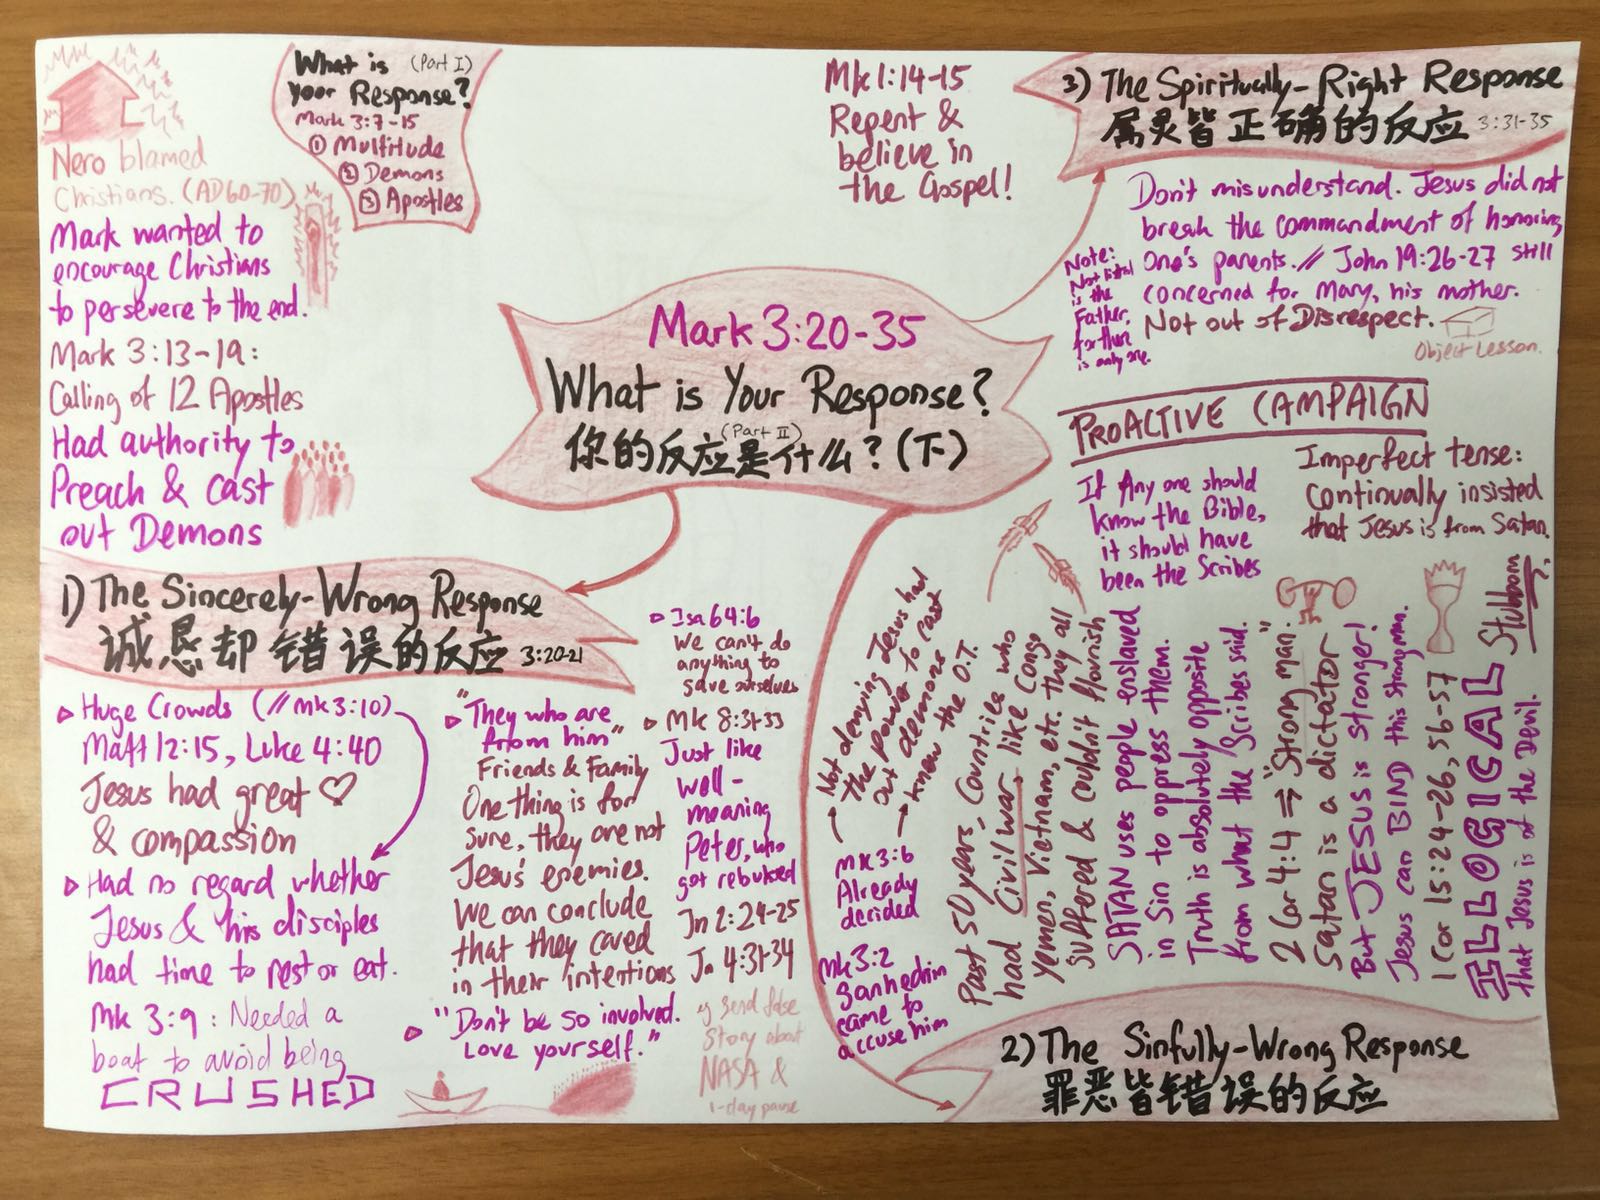 Nero blamed
Christians. (AD60-70)
Mark wanted to
encourage Christians
to persevere to the end.
Mark 3:13-19:
Calling of 12 Apostles
Had authority to
Preach & cast
out Demons
What is (Part I)
your Response?
Mark 3:7-15
① Multitude
② Demons
③ Apostles
Mk 1:14-15
Repent &
believe in
the Gospel!
Mark 3:20-35
What is Your Response?
(Part II)
你的反应是什么?(下)
1) The Sincerely-Wrong Response
诚恳却错误的反应 3:20-21
▷ Huge Crowds (//mk3:10)
Matt 12:15, Luke 4:40
Jesus had great ♡
& compassion
▷ Had no regard whether
Jesus & his disciples
had time to rest or eat.
Mk 3:9: Needed a
boat to avoid being
CRUSHED
▷ "They who are
from him"
Friends & Family
One thing is for
sure, they are not
Jesus' enemies.
We can conclude
that they cared
in their intentions
▷ "Don't be so involved.
Love yourself."
▷ Isa 64:6
We can't do
anything to
save ourselves
▷ Mk 8:31-33
Just like
well-
meaning
Peter, who
got rebuked
Jn 2:24-25
Jn 4:31-34
eg send false
Story about
NASA &
1-day pause
2) The Sinfully-Wrong Response
罪恶皆错误的反应
mk 3:6
Already
decided
mk 3:2
Sanhedrin
came to
accuse him
Not denying Jesus had
the power to cast
out demons
knew the O.T.
Past 50 years, Countries who
had Civil war like Congo
Yemen, Vietnam, etc. they all
suffered & couldn't flourish
SATAN uses people enslaved
in Sin to oppress them.
Truth is absolutely opposite
from what the Scribes said.
2 Cor 4:4 ⇒ "Strong man."
Satan is a dictator
But JESUS is stronger!
Jesus can BIND this strong man.
1 Cor 15:24-26, 56-57
ILLOGICAL Stubborn
that Jesus is of the Devil.
PROACTIVE CAMPAIGN
If Any one should
know the Bible,
it should have
been the Scribes
Imperfect tense:
Continually insisted
that Jesus is from Satan.
3) The Spiritually-Right Response
属灵皆正确的反应 3:31-35
Don't misunderstand. Jesus did not
break the commandment of honoring
One's parents. // John 19:26-27 still
concerned for Mary, his mother.
Not out of Disrespect.
Object Lesson.
Note:
Not listed
is the
Father,
for there
is only one.